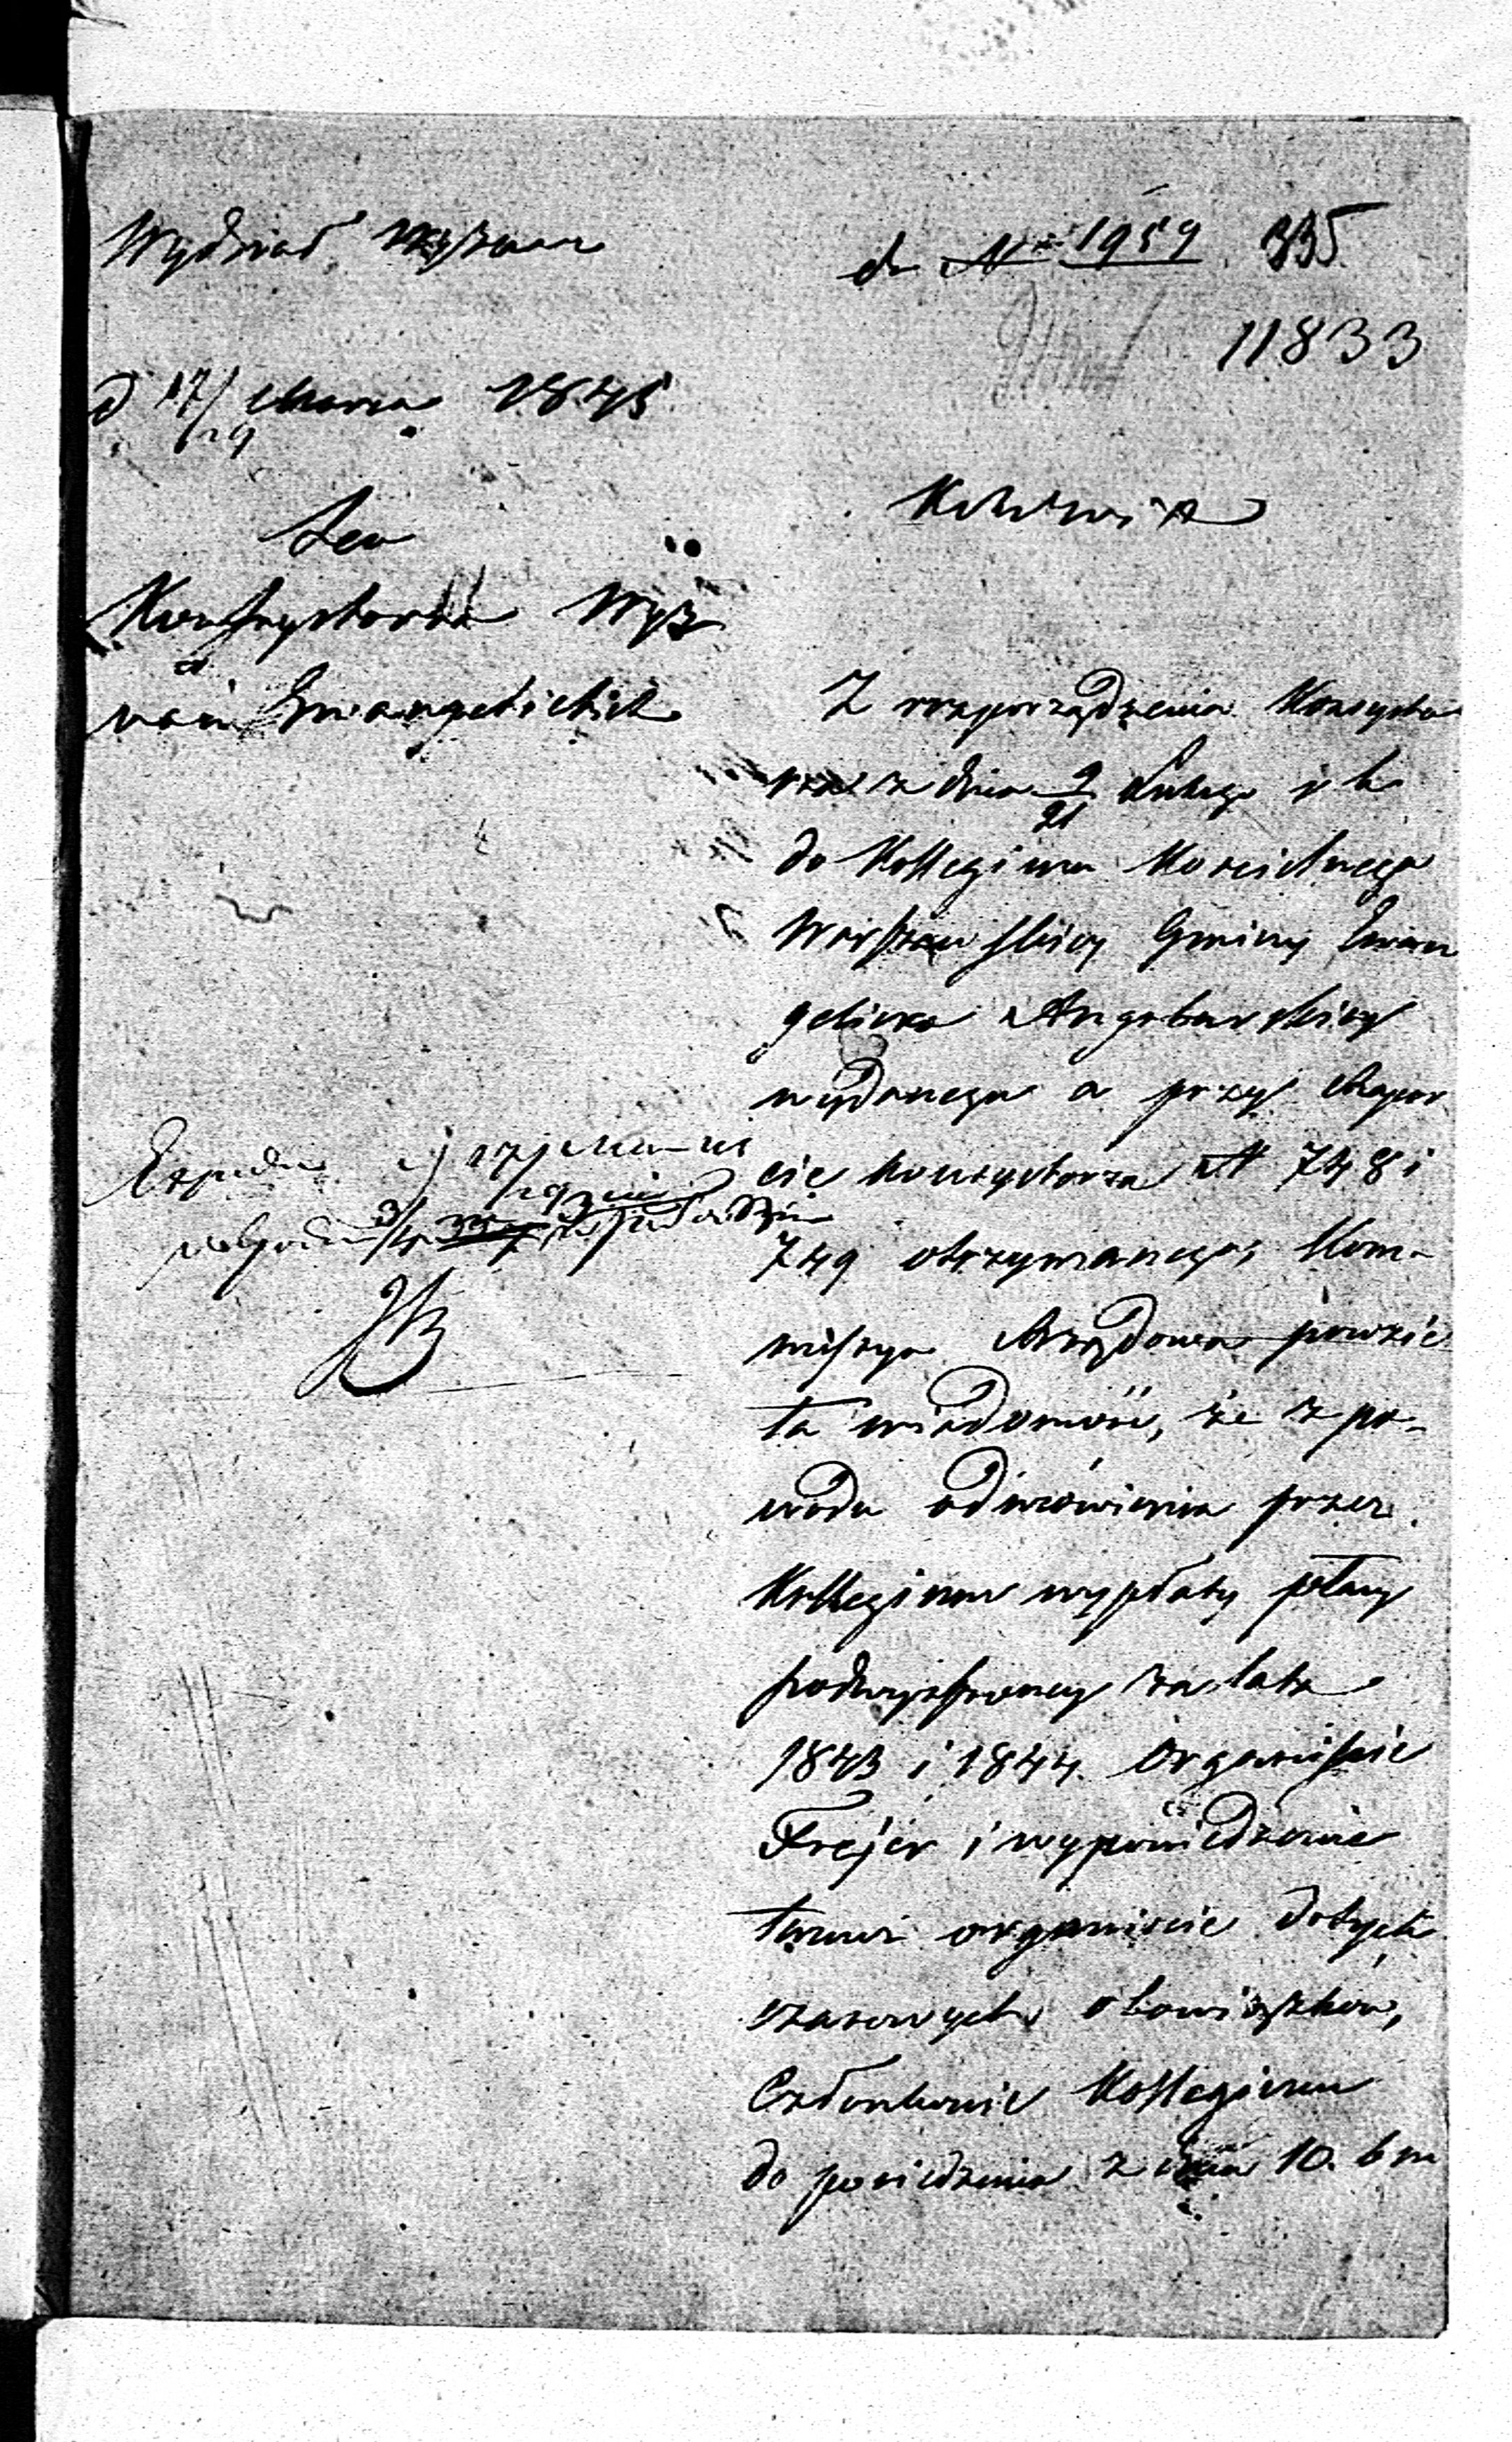 Wydział Wyznań
do № 1959 335
11833
d 17/29 Marca 1845
Do
Konsystorza Wyz
nań Ewangelickich
Z rozporządzenia Konsysto
rza z dnia 9/21 Lutego r b
do Kollegium Kościelnego
Warszawskiey Gminy Ewan
gelicko Augsburskiey
wydanego a przy Rapor
cie Konsystorza N 748 i
749 otrzymanego, Kom-
missya Rządowa powzię
ła wiadomość, że z po-
wodu odmówienia przez
Kollegium wypłaty płacy
podwyższoney za lata
1843 i 1844 Organiście
Frejer i wypowiedzenie
temuż organiście dotych
czasowych obowiązków,
Członkowie Kollegium
do posiedzenia z dnia 10 b m
17/29 Marca
JB